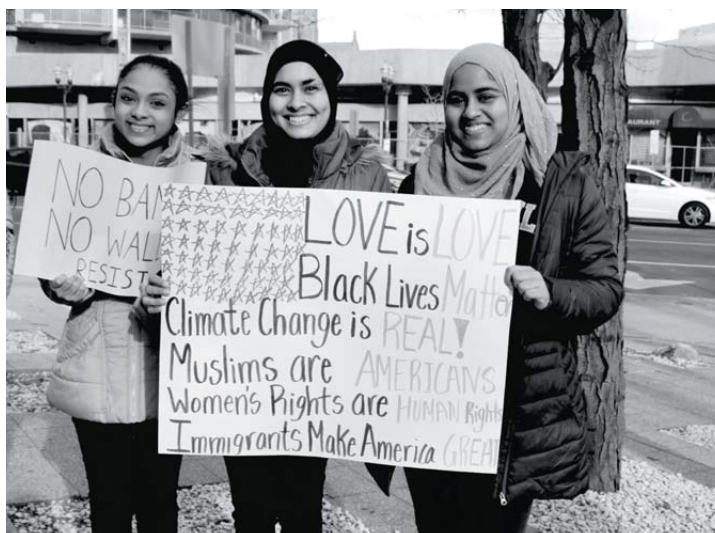 NO BAN
NO WALL
RESIST
LOVE is LOVE
Black Lives Matter
Climate Change is REAL!
Muslims are AMERICANS
Women's Rights are HUMAN Rights
Immigrants Make America GREAT
AURANT